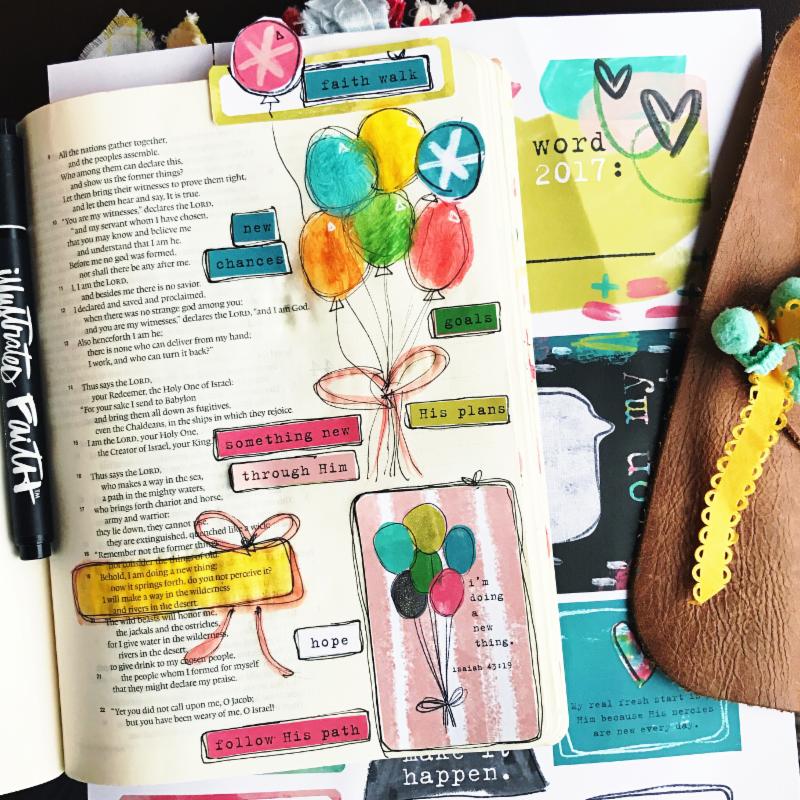 faith walk
9 All the nations gather together,
and the peoples assemble.
Who among them can declare this,
and show us the former things?
Let them bring their witnesses to prove them right,
and let them hear and say, It is true.
10 "You are my witnesses," declares the LORD,
"and my servant whom I have chosen,
that you may know and believe me
and understand that I am he.
Before me no god was formed,
nor shall there be any after me.
11 I, I am the LORD,
and besides me there is no savior.
12 I declared and saved and proclaimed,
when there was no strange god among you;
and you are my witnesses," declares the LORD, "and I am God.
13 Also henceforth I am he;
there is none who can deliver from my hand;
I work, and who can turn it back?"
14 Thus says the LORD,
your Redeemer, the Holy One of Israel:
"For your sake I send to Babylon
and bring them all down as fugitives,
even the Chaldeans, in the ships in which they rejoice.
15 I am the LORD, your Holy One,
the Creator of Israel, your King."
16 Thus says the LORD,
who makes a way in the sea,
a path in the mighty waters,
17 who brings forth chariot and horse,
army and warrior;
they lie down, they cannot rise,
they are extinguished, quenched like a wick:
18 "Remember not the former things,
nor consider the things of old.
19 Behold, I am doing a new thing;
now it springs forth, do you not perceive it?
I will make a way in the wilderness
and rivers in the desert.
The wild beasts will honor me,
the jackals and the ostriches,
for I give water in the wilderness,
rivers in the desert,
to give drink to my chosen people,
21 the people whom I formed for myself
that they might declare my praise.
22 "Yet you did not call upon me, O Jacob;
but you have been weary of me, O Israel!
new
chances
goals
His plans
something new
through Him
hope
follow His path
i'm
doing
a
new
thing.
isaiah 43:19
illustrated FAITH™
word
2017:
on my
My real fresh start is
Him because His mercies
are new every day.
make it
happen.